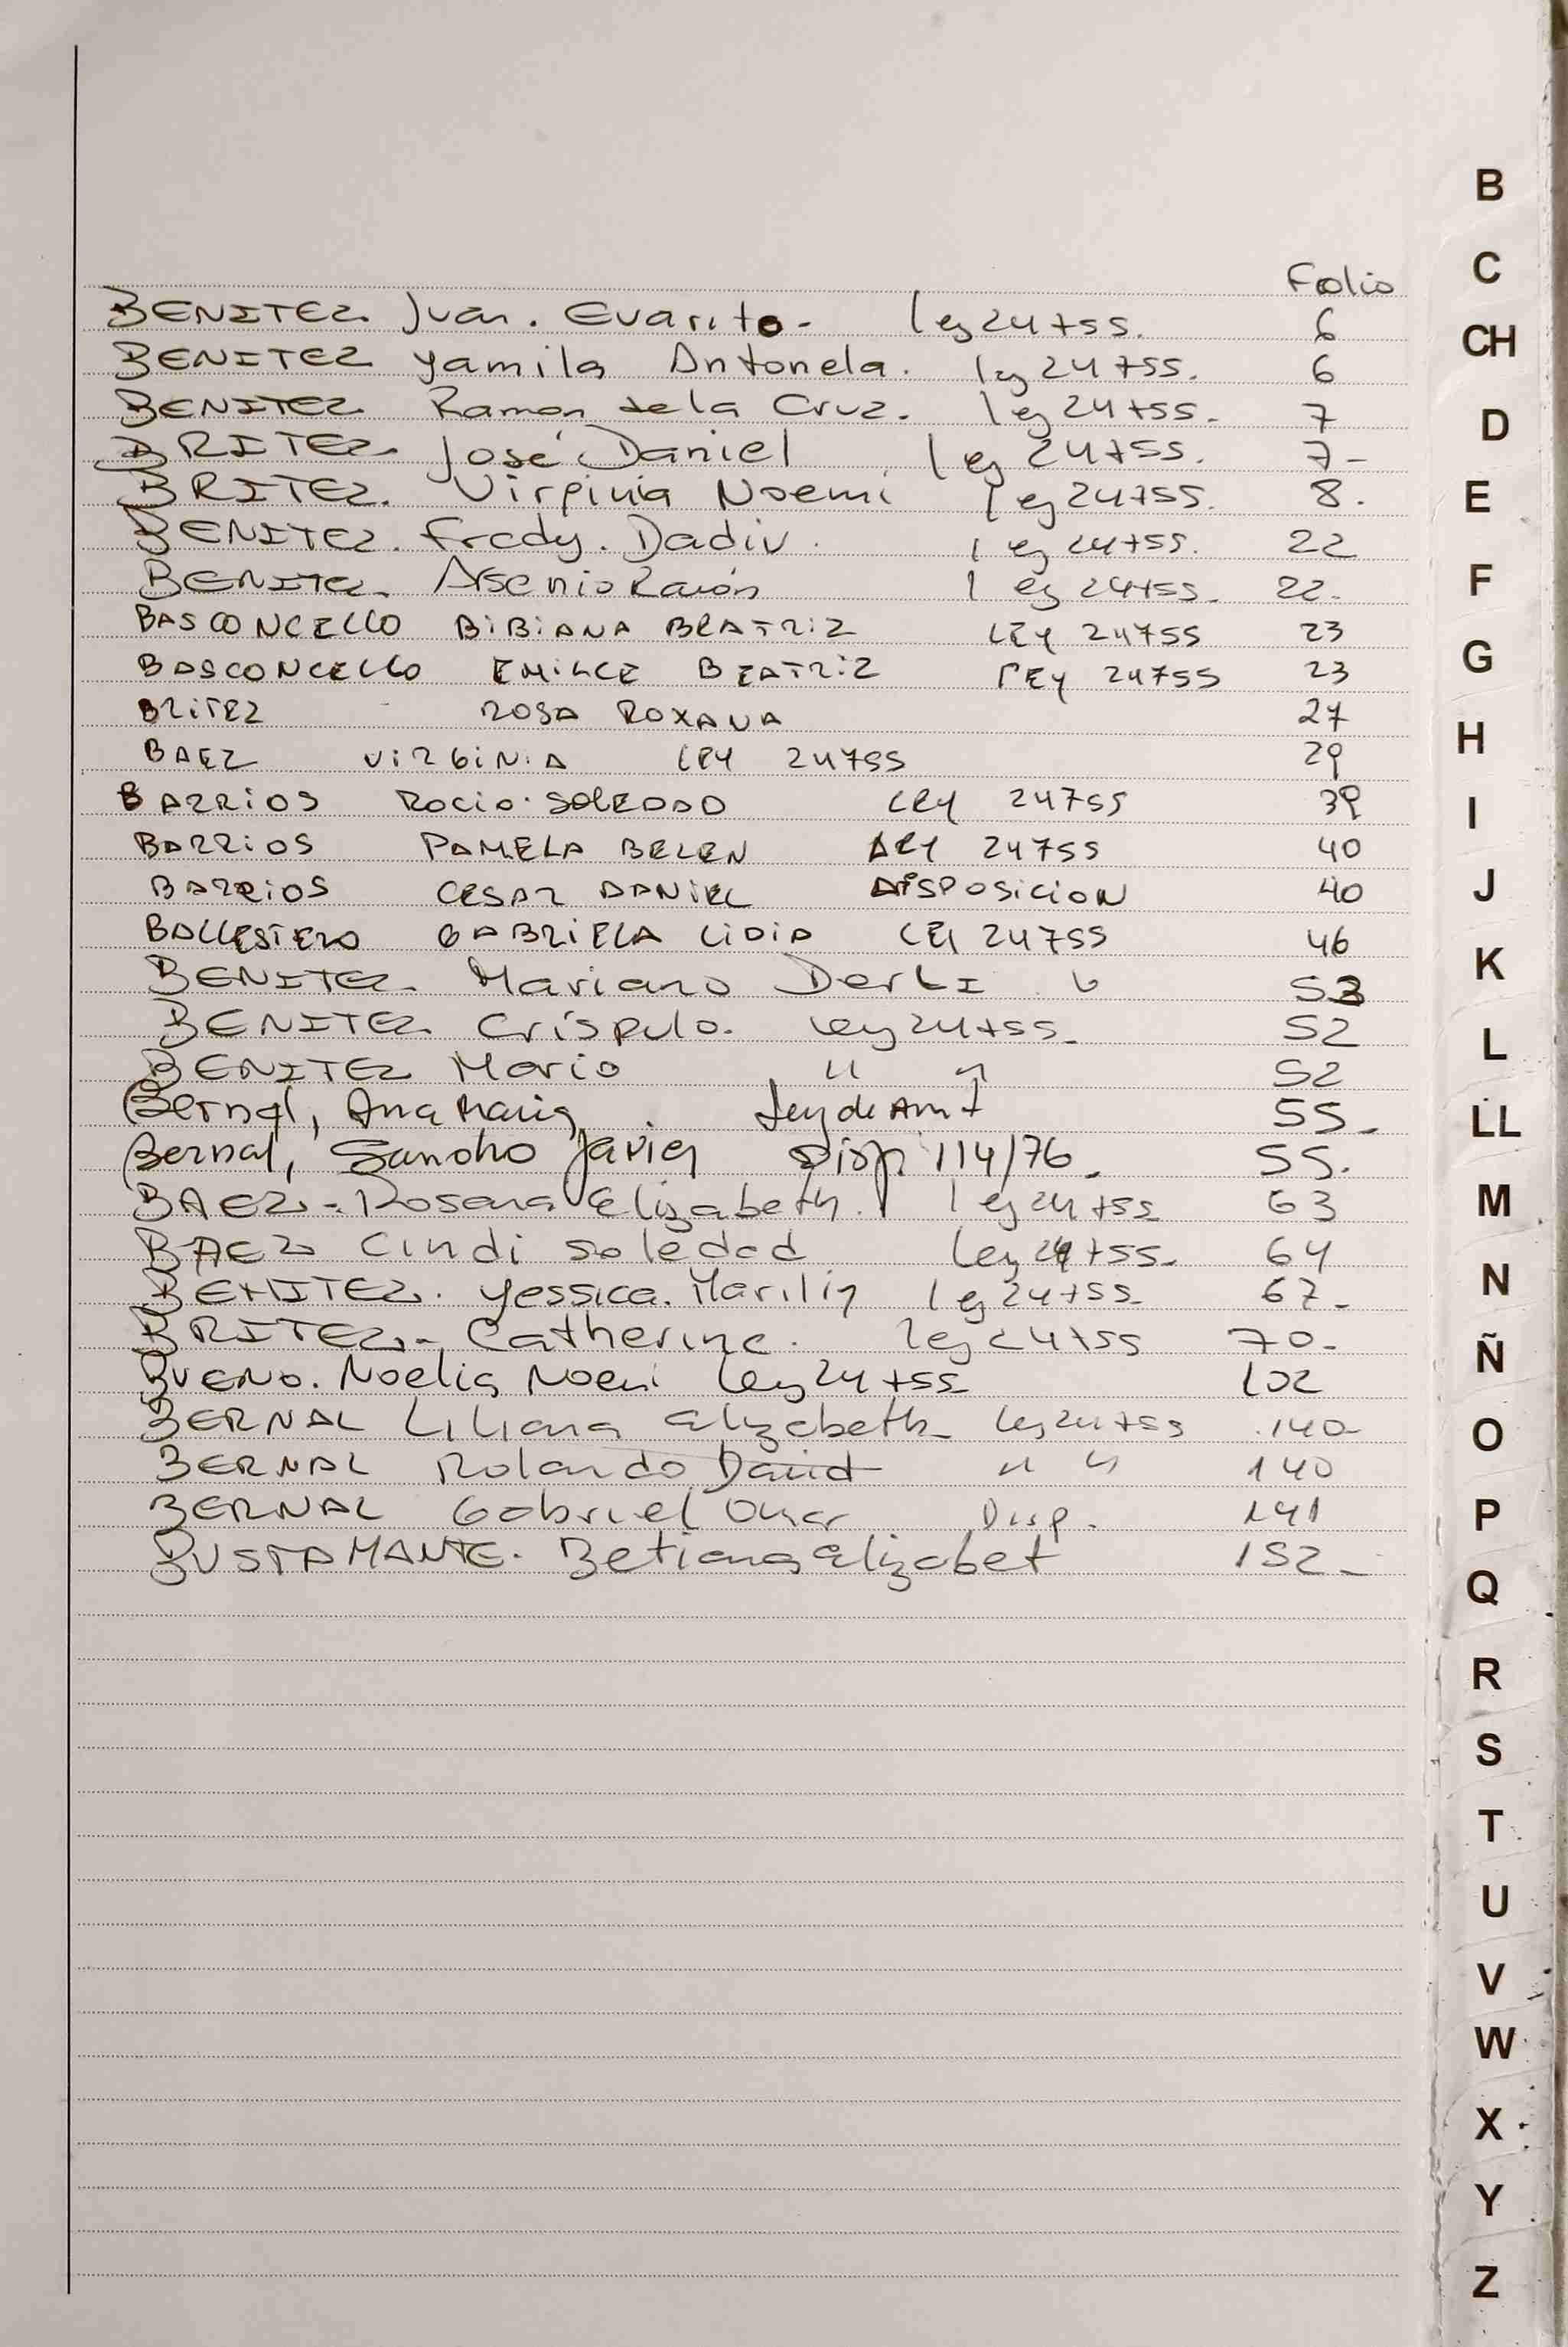 Folio
BENITEZ Juan. Evarito- ley 24755. 6
BENITEZ Yamila Antonela. ley 24755. 6
BENITEZ Ramon de la Cruz. ley 24755. 7
BRITEZ José Daniel ley 24755. 7-
BRITEZ. Virginia Noemi ley 24755. 8.
BENITEZ. Fredy. Dadiv. ley 24755. 22
BENITEZ Arsenio Ramón ley 24755. 22.
BASCONCELLO BIBIANA BEATRIZ LEY 24755 23
BASCONCELLO EMILCE BEATRIZ LEY 24755 23
BRITEZ ROSA ROXANA 27
BAEZ VIRGINIA LEY 24755 29
BARRIOS ROCIO SOLEDAD LEY 24755 39
BARRIOS PAMELA BELEN LEY 24755 40
BARRIOS CESAR DANIEL DISPOSICION 40
BALLESTERO GABRIELA LIDIA LEY 24755 46
BENITEZ Mariano 53
BENITEZ Críspulo. Ley 24755. 52
BENITEZ Mario " " 52
Bernal, Ana Maria. 55.
Bernal, Sandro Javier Disp. 114/76. 55.
BAEZ - Rosana Elizabeth. ley 24755 63
BAEZ Cindi Soledad Ley 24755. 64
BENITEZ. Yessica. Marilin ley 24755 67-
BRITEZ - Catherine. ley 24755 70-
BUENO. Noelia Noemi Ley 24755 102
BERNAL Liliana Elizabeth ley 24755 140-
BERNAL Rolando David " " 140
BERNAL Gabriel Omar Disp. 141
BUSTAMANTE. Betiana Elizabet 152-
B
C
CH
D
E
F
G
H
I
J
K
L
LL
M
N
Ñ
O
P
Q
R
S
T
U
V
W
X
Y
Z